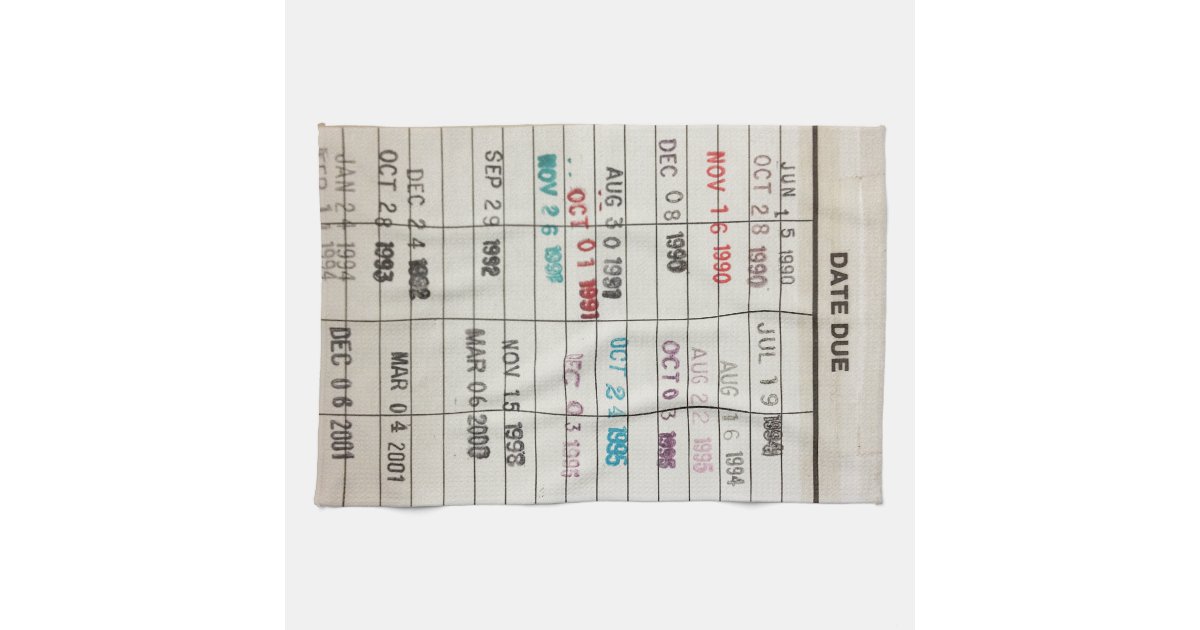 DATE DUE
JUN 15 1990
OCT 28 1990
NOV 16 1990
DEC 08 1990
AUG 30 1991
OCT 01 1991
NOV 26 1992
SEP 29 1992
DEC 24 1992
OCT 28 1993
JAN 24 1994
1994
JUL 19 1994
AUG 16 1994
AUG 22 1995
OCT 03 1995
OCT 24 1995
03 1996
NOV 15 1998
MAR 06 2000
MAR 04 2001
DEC 06 2001